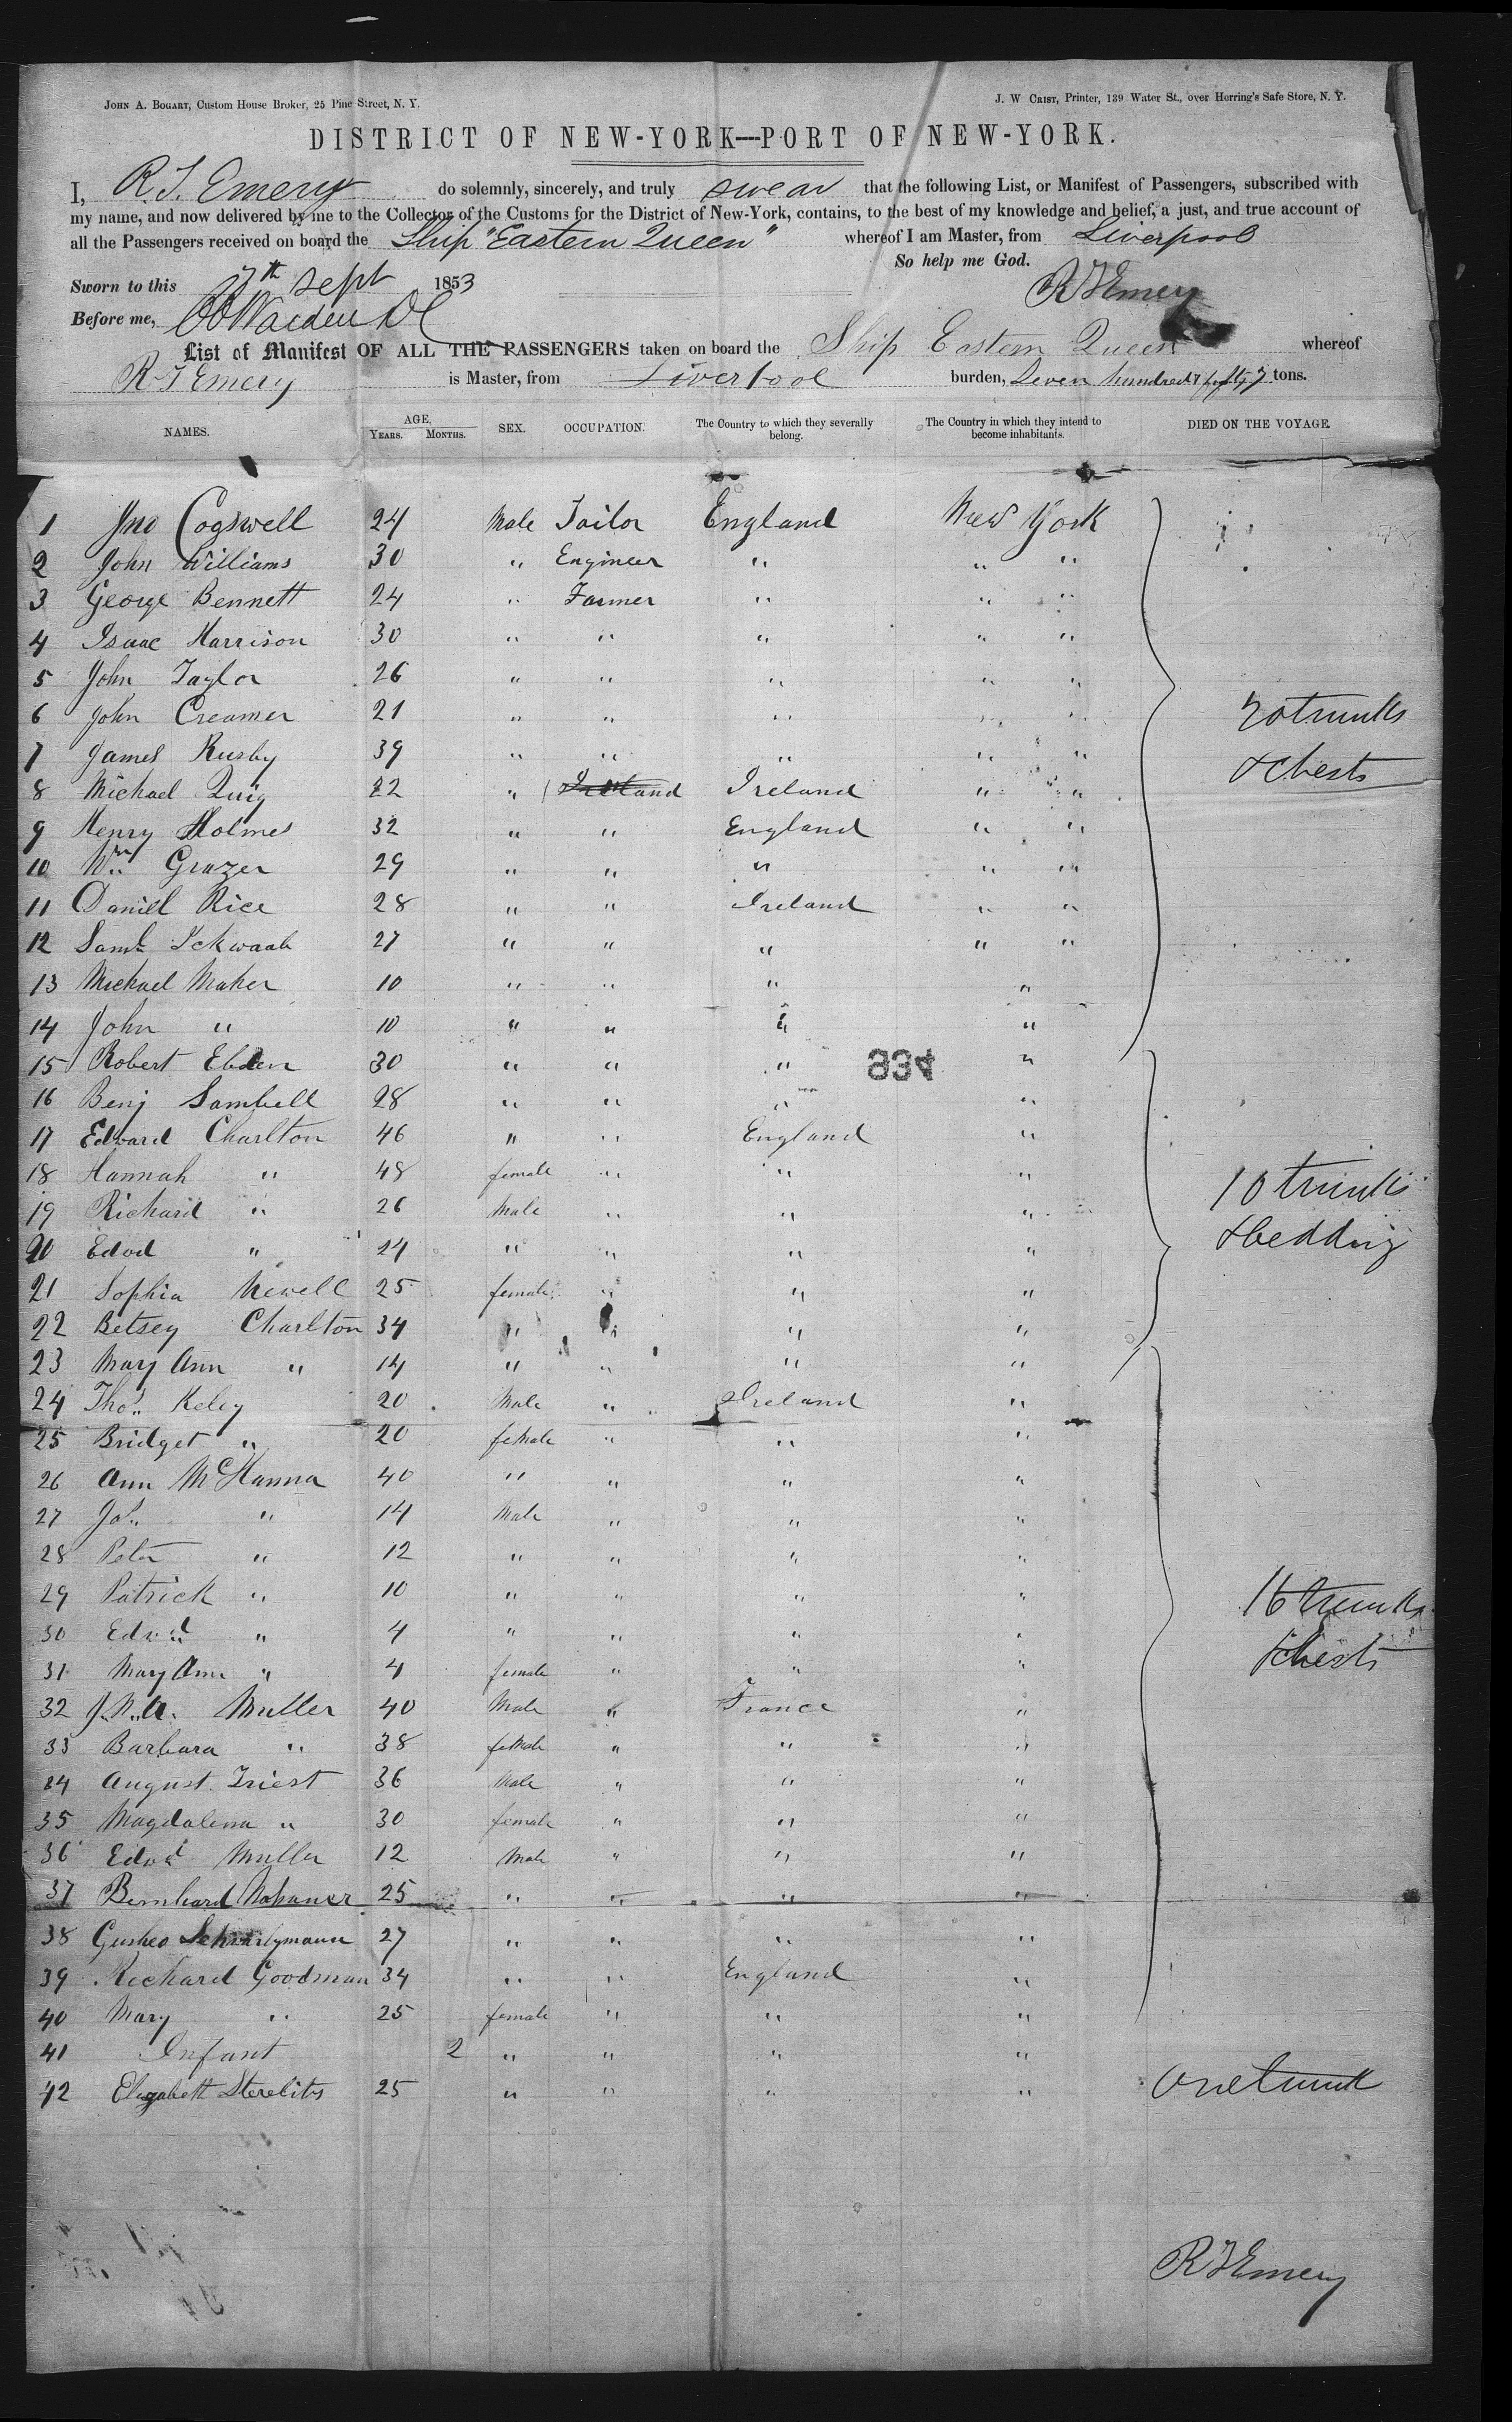 JOHN A. BOGART, Custom House Broker, 25 Pine Street, N. Y. J. W CRIST, Printer, 139 Water St., over Herring's Safe Store, N. Y.
DISTRICT OF NEW-YORK—PORT OF NEW-YORK.
I, R. T. Emery do solemnly, sincerely, and truly swear that the following List, or Manifest of Passengers, subscribed with
my name, and now delivered by me to the Collector of the Customs for the District of New-York, contains, to the best of my knowledge and belief, a just, and true account of
all the Passengers received on board the Ship "Eastern Queen" whereof I am Master, from Liverpool
So help me God.
Sworn to this 7th Sept 1853 R T Emery
Before me,
List of Manifest OF ALL THE PASSENGERS taken on board the Ship Eastern Queen whereof
R T Emery is Master, from Liverpool burden, Seven hundred & fifty 7 tons.
NAMES. AGE, YEARS. MONTHS. SEX. OCCUPATION. The Country to which they severally belong. The Country in which they intend to become inhabitants. DIED ON THE VOYAGE.
1 Jno Cogswell 24 Male Tailor England New York
2 John Williams 30 " Engineer " " "
3 George Bennett 24 " Farmer " " "
4 Isaac Harrison 30 " " " " "
5 John Taylor 26 " " " " "
6 John Creamer 21 " " " " " 20 trunks
7 James Rusby 39 " " " " " & chests
8 Michael Quig 22 " Ireland Ireland " "
9 Henry Holmes 32 " " England " "
10 Wm Grazer 29 " " " " "
11 Daniel Rice 28 " " Ireland " "
12 Saml 27 " " " " "
13 Michael Maher 10 " " " "
14 John " 10 " " " "
15 Robert Ebden 30 " " " "
334
16 Benj Sambell 28 " " " "
17 Edward Charlton 46 " " England "
18 Hannah " 48 female " " " 10 trunks
19 Richard " 26 Male " " " & bedding
20 Edwd " 24 " " " "
21 Sophia Newell 25 female " " "
22 Betsey Charlton 34 " " " "
23 Mary Ann " 14 " " " "
24 Thos. Keley 20 Male " Ireland "
25 Bridget " 20 female " " "
26 Ann McHanna 40 " " " "
27 Jas. " 14 Male " " "
28 Peter " 12 " " " "
29 Patrick " 10 " " " " 16 trunks
30 Edwd " 4 " " " "
31 Mary Ann " 4 female " " " & chests
32 J. N. A. Muller 40 Male " France "
33 Barbara " 38 female " " "
34 August Triest 36 Male " " "
35 Magdalena " 30 female " " "
36 Edwd Muller 12 Male " " "
37 Bernhard 25 " " " "
38 27 " " " "
39 Richard Goodman 34 " " England "
40 Mary " 25 female " " "
41 Infant 2 " " " "
42 Elizabeth 25 " " " " One trunk
R T Emery